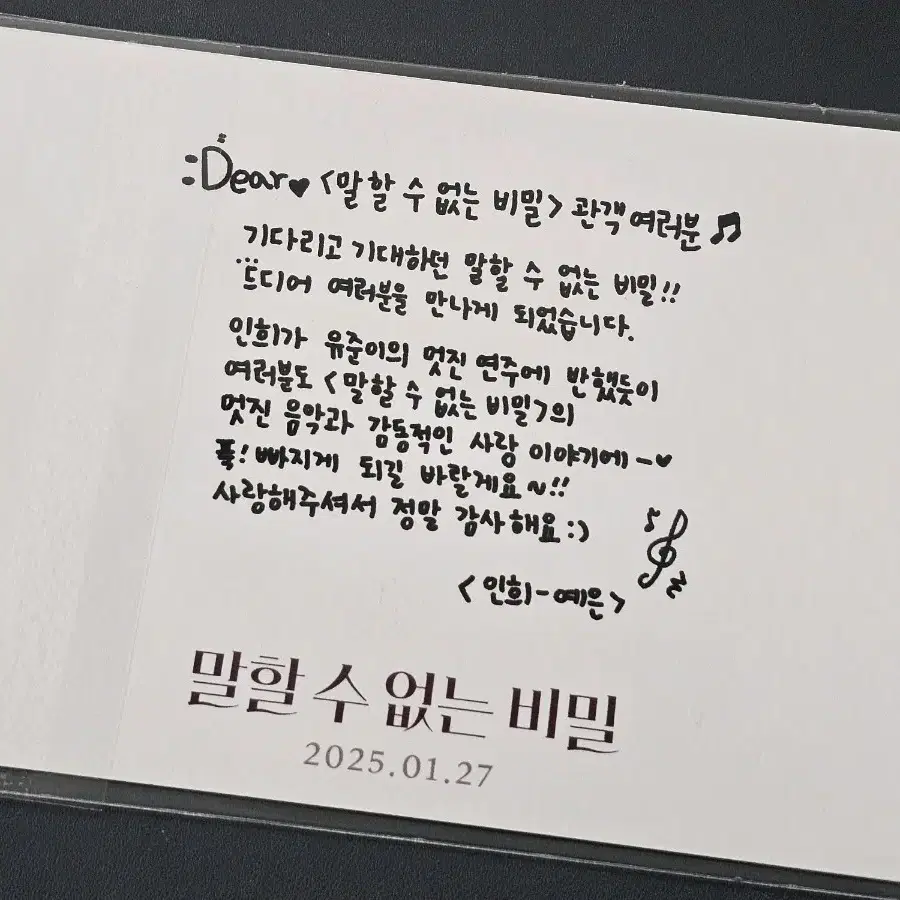 :Dear♥ <말할 수 없는 비밀> 관객 여러분♫
기다리고 기대하던 말할 수 없는 비밀!!
드디어 여러분을 만나게 되었습니다.
인희가 유준이의 멋진 연주에 반했듯이
여러분도 <말할 수 없는 비밀>의
멋진 음악과 감동적인 사랑 이야기에-♥
푹! 빠지게 되길 바랄게요~!!
사랑해주셔서 정말 감사해요:)
<인희-예은>
말할 수 없는 비밀
2025.01.27